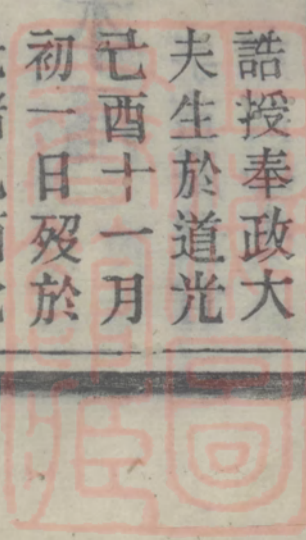 誥授奉政大
夫生於道光
己酉十一月
初一日歿於